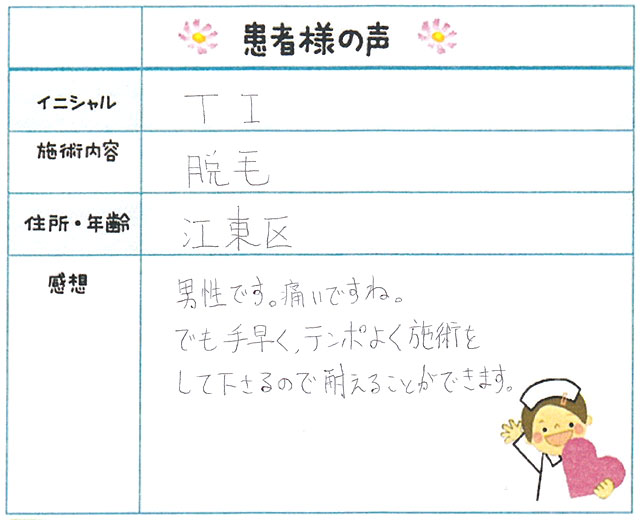 患者様の声
イニシャル
T I
施術内容
脱毛
住所・年齢
江東区
感想
男性です。痛いですね。
でも手早く,テンポよく施術を
して下さるので耐えることができます。